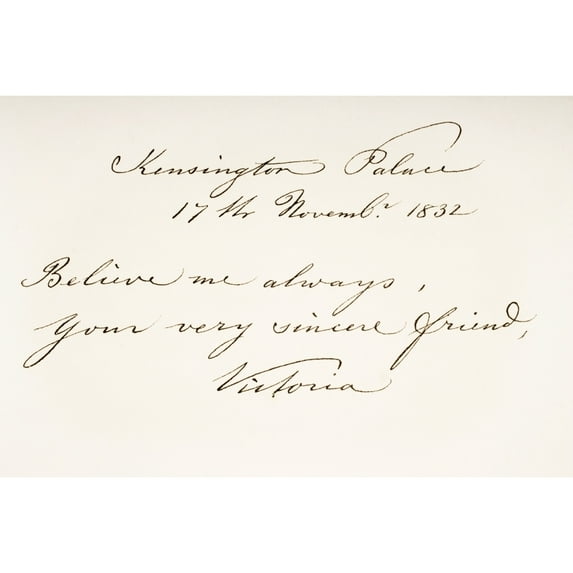 Kensington Palace
17th Novemb.r 1832
Believe me always,
Your very sincere friend,
Victoria